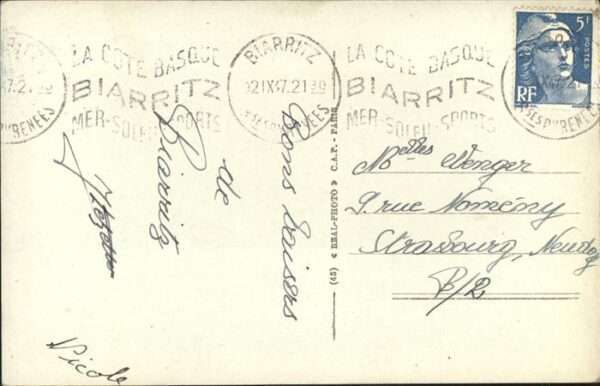 LA COTE BASQUE
BIARRITZ
MER-SOLEIL-SPORTS
BIARRITZ
21IX47.21
LA COTE BASQUE
BIARRITZ
MER-SOLEIL-SPORTS
5F
POSTES
RF
Bons baisers
de
Biarritz
Nicole
(45) « REAL-PHOTO » C.A.P. - PARIS
Melles Wenger
9, rue Nomény
Strasbourg, Neudorf
B/2